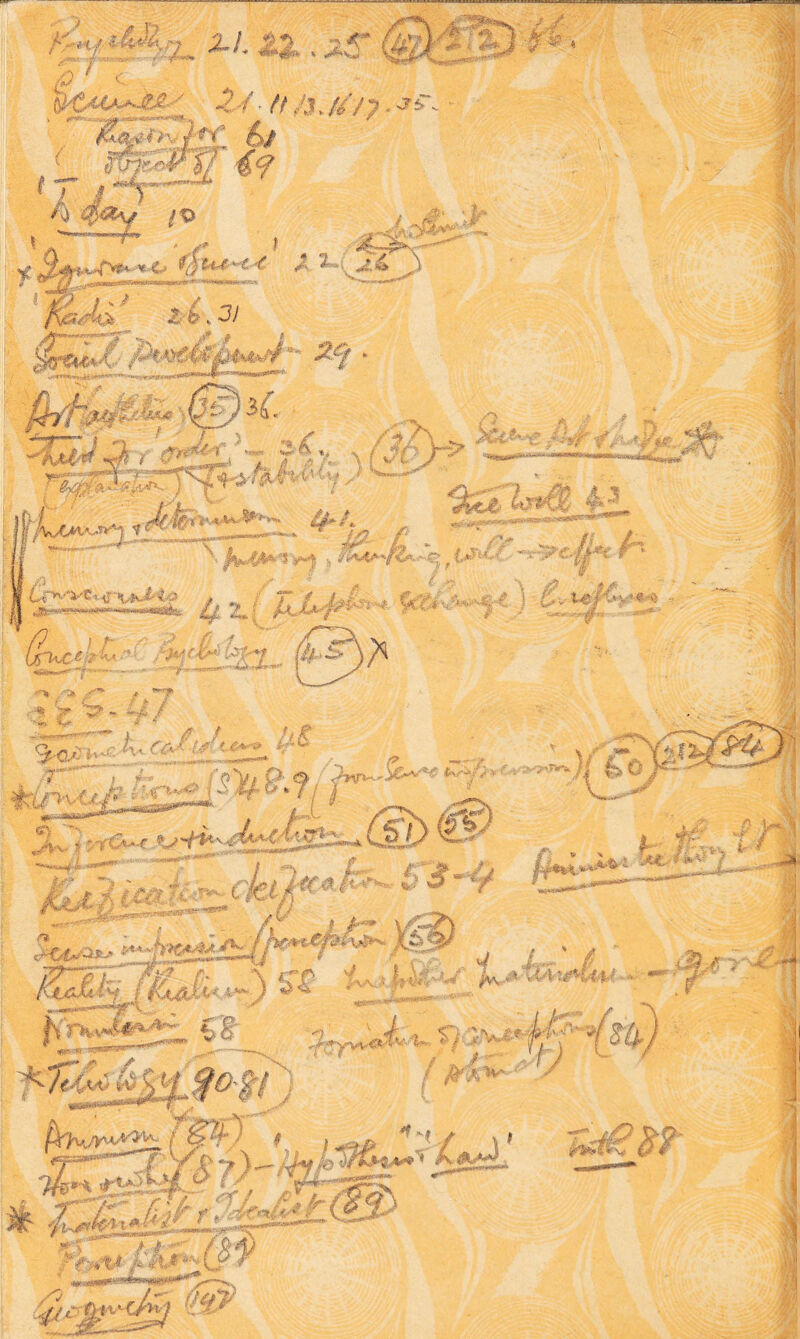 Psychology 21. 22. 25 47 212 66.
Science 21. 11 13. 16 17. 35.
Reason for 61
object of 69
'To day' 10
no limit
x 'Ignorance of Science' 22 26
'Radio' 26. 31
Social Development 29.
Art (aesthetics) 35 36.
'need for order' - 36. 36 → Science Art & 
(explanation) (+ stability)
Free Will 43
Memory & determinism 41.
memory, thinking, will → effect
Consciousness 42 (Telephone exchange) C. reflexes
Conceptual Psychology 45 X
EES. 47
Geometrical ideas 48
* Conceptions (S) 48. 9 (from Sense impressions) 50 212 84
Inference & induction. 51 55
Reification deification 53-4 Animistic
Sense impression (perception) 56
Reality (Realism) 58 Materialism - gone
58 Formation of Conceptions (84)
* Teleology 90. 81
(Atom et)
Animism (84)
How & why (87) - "Hypothesis" & 'Law' Truth 88
* Materialist & Idealist (89)
Perception (89)
Geogmetry 147